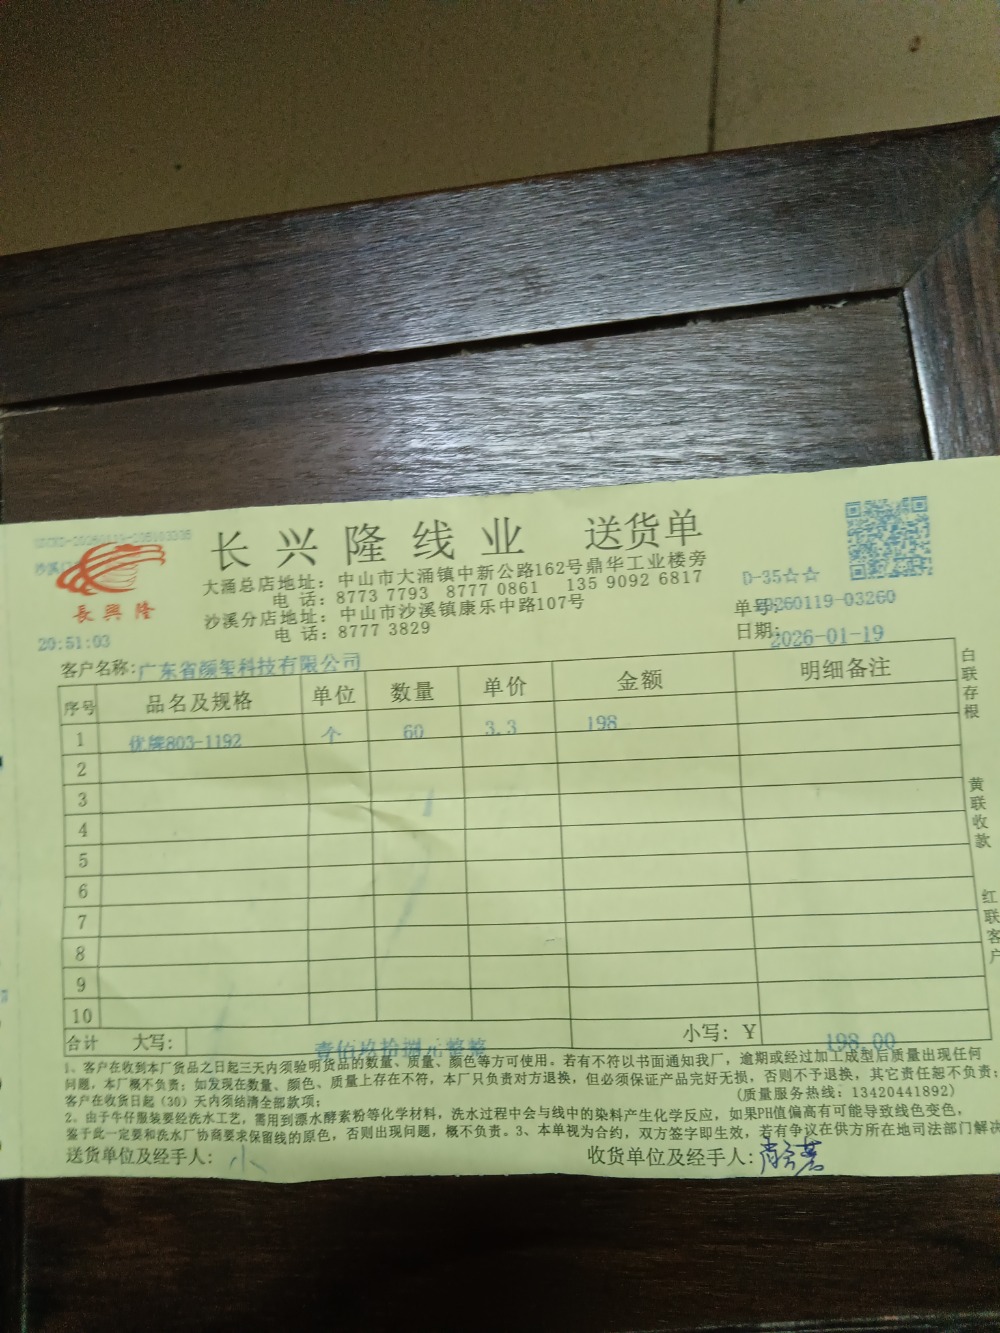 长兴隆线业 送货单
長興隆
大涌总店地址：中山市大涌镇中新公路162号鼎华工业楼旁
电 话：8773 7793 8777 0861 135 9092 6817
沙溪分店地址：中山市沙溪镇康乐中路107号
电 话：8777 3829
D-35☆☆
单号：20260119-03260
日期：2026-01-19
20:51:03
客户名称：广东省颜玺科技有限公司
序号 品名及规格 单位 数量 单价 金额 明细备注
1 优牌803-1192 个 60 3.3 198
2
3
4
5
6
7
8
9
10
合计 大写：壹佰玖拾捌元整整 小写：￥ 198.00
白联存根
黄联收款
红联客户
1、客户在收到本厂货品之日起三天内须验明货品的数量、质量、颜色等方可使用。若有不符以书面通知我厂，逾期或经过加工成型后质量出现任何
问题，本厂概不负责；如发现在数量、颜色、质量上存在不符，本厂只负责对方退换，但必须保证产品完好无损，否则不予退换，其它责任恕不负责；
客户在收货日起（30）天内须结清全部款项； （质量服务热线：13420441892）
2、由于牛仔服装要经洗水工艺，需用到漂水酵素粉等化学材料，洗水过程中会与线中的染料产生化学反应，如果PH值偏高有可能导致线色变色，
鉴于此一定要和洗水厂协商要求保留线的原色，否则出现问题，概不负责。3、本单视为合约，双方签字即生效，若有争议在供方所在地司法部门解决
送货单位及经手人：小
收货单位及经手人：